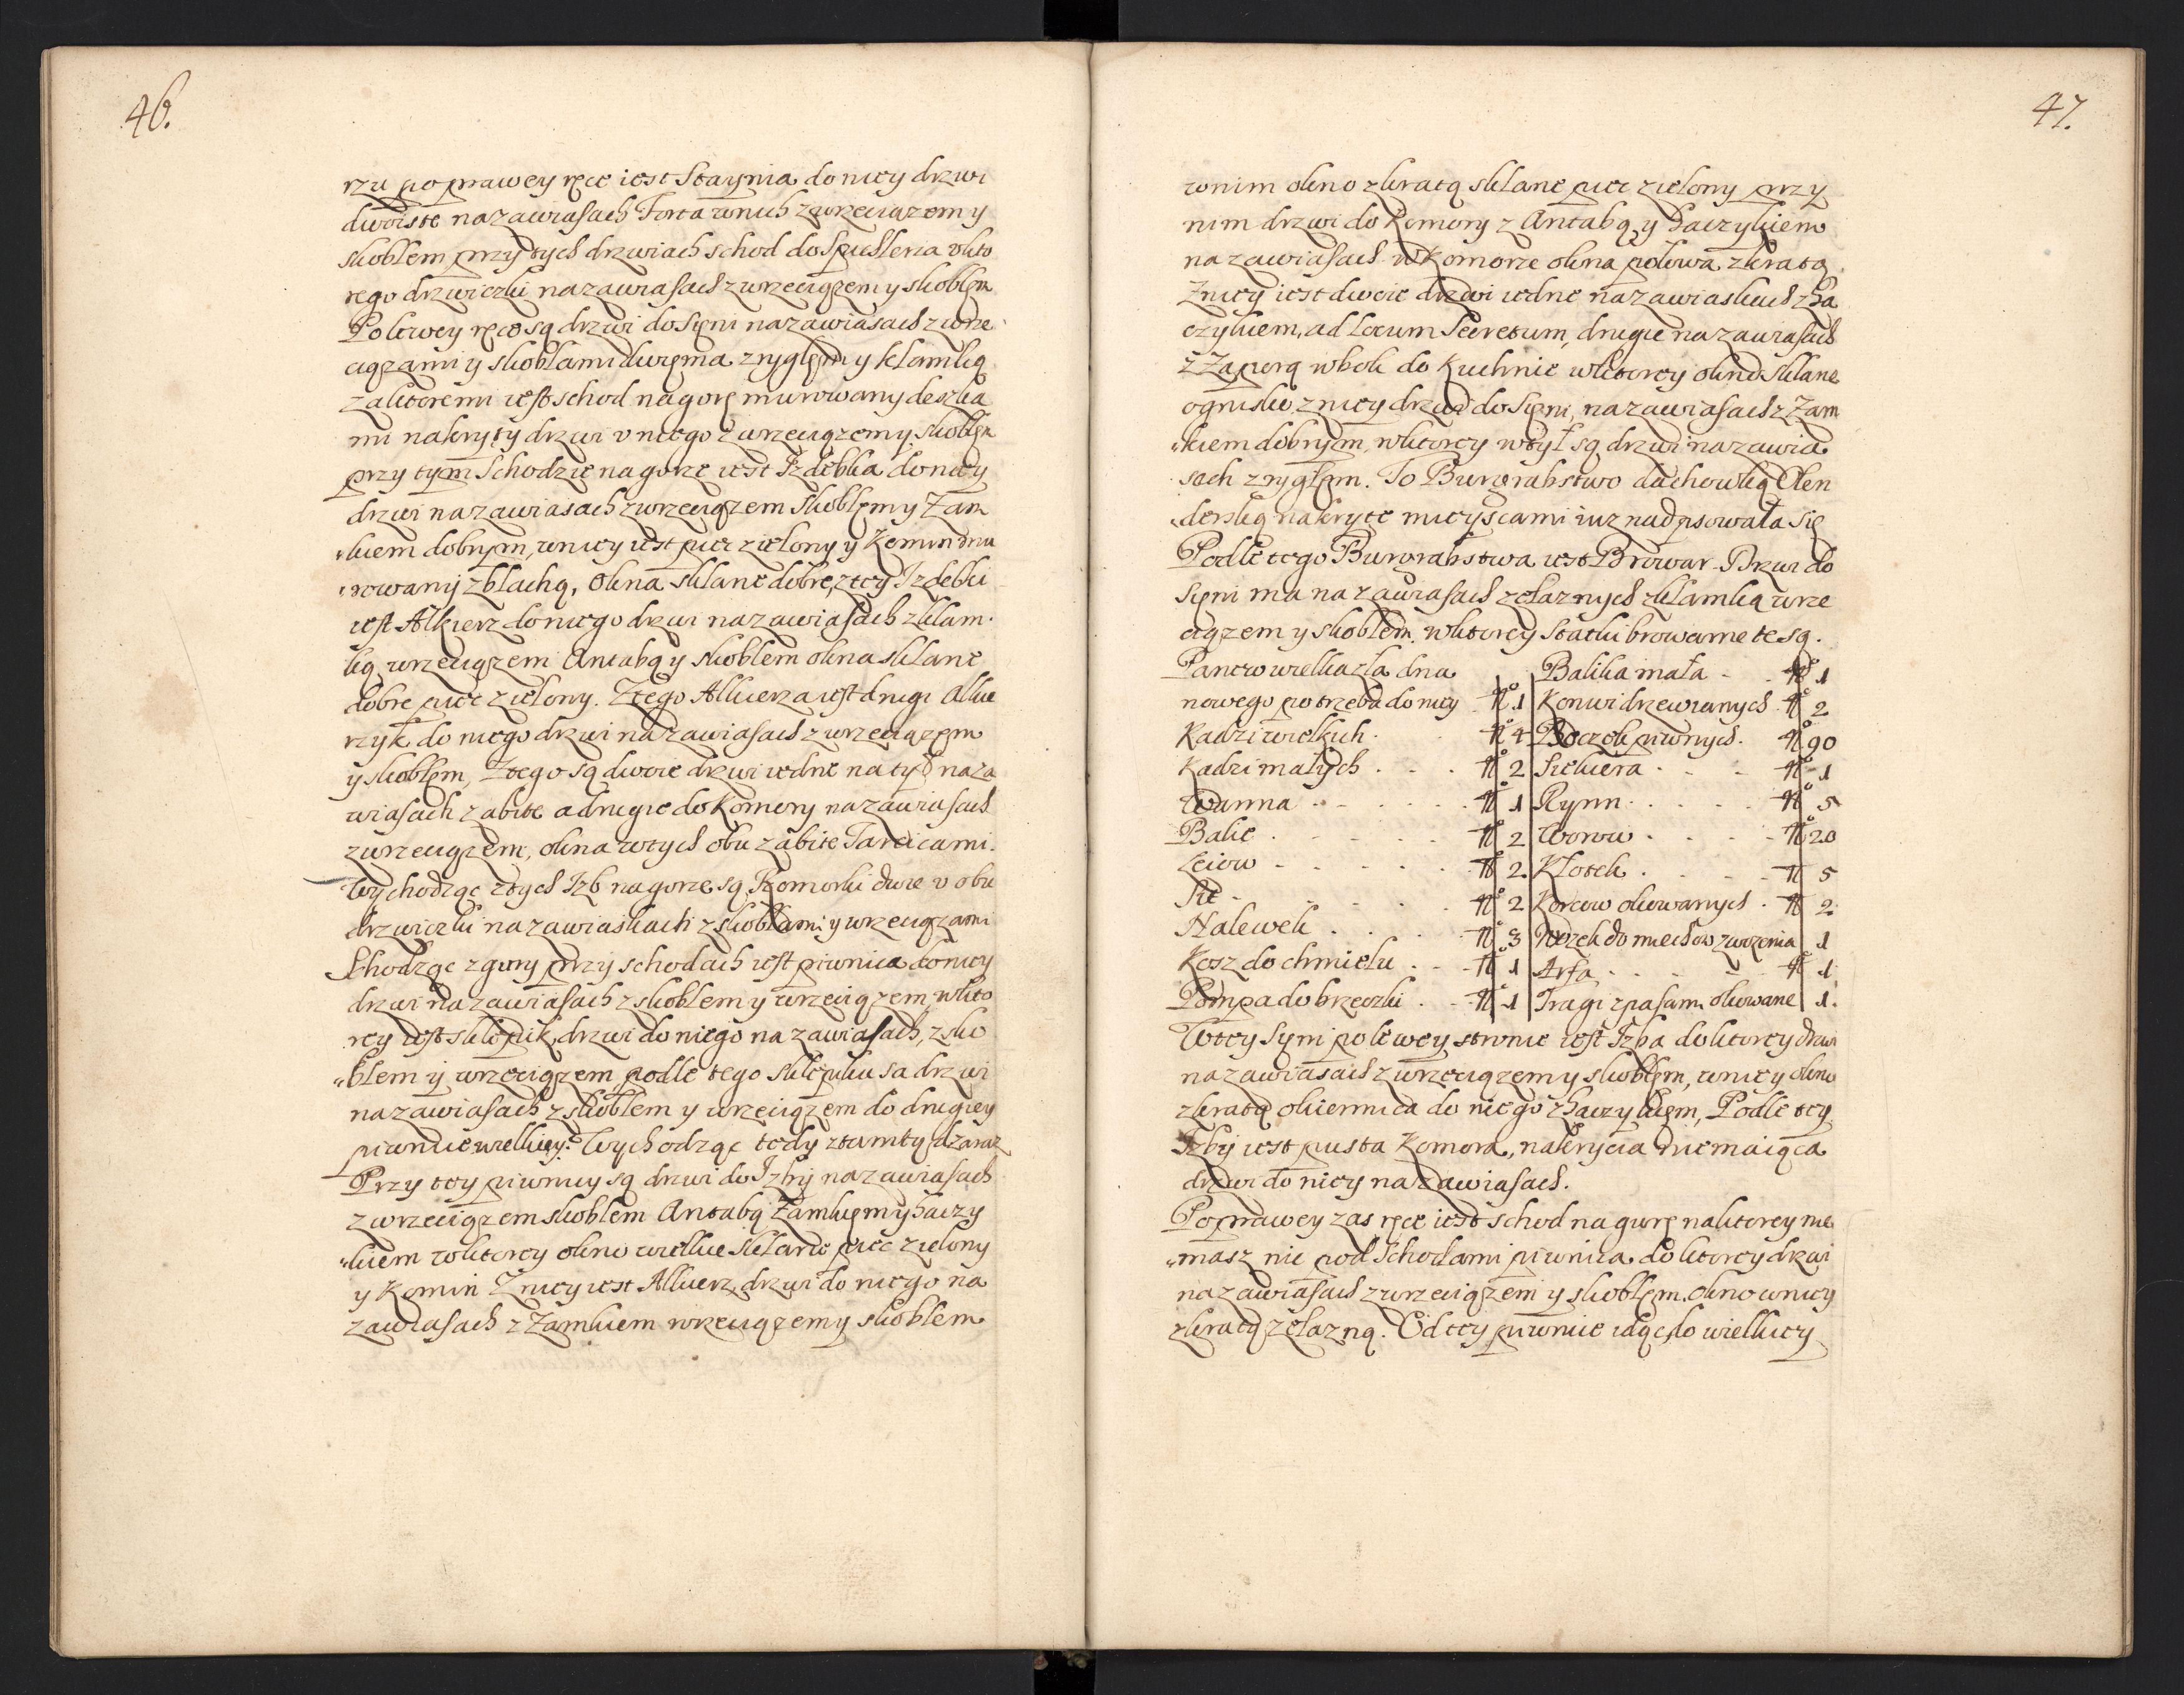 46.
rzu po prawey ręce iest Staynia do niey drzwi
dwoiste na zawiasach Forta w nich z wrzeciązem y
skoblem przy tych drzwiach schod do Spichlerza v kto
rego drzwiczki na zawiasach z wrzeciązem y skoblem
Po lewey ręce są drzwi do Sieni na zawiasach z wrze
ciązami y skoblami dwięma z ryglem y klamką
za ktoremi iest schod na gorę murowany deszka
mi nakryty drzwi v niego z wrzeciązem y skoblem
przy tym Schodzie na gorze iest Izdebka do niey
drzwi na zawiasach z wrzeciązem skoblem y Zam
kiem dobrym, w niey iest piec zielony y Komin mu
rowany z blachą, Okna sklane dobre, z tey Izdebki
iest Alkierz do niego drzwi na zawiasach z klam
ką wrzeciązem Antabą y skoblem okna sklane
dobre piec zielony. Z tego Alkierza iest drugi Alkie
rzyk do niego drzwi na zawiasach z wrzeciązem
y skoblem, Z tego są dwoie drzwi iedne na tył na za
wiasach zabite a drugie do Komory na zawiasach
z wrzeciązem, okna w tych obu zabite Tarcicami.
Wychodząc z tych Izb na gorze są Komorki dwie v obu
drzwiczki na zawiaskach z skoblami y wrzeciązami
Schodząc z gury przy schodach iest piwnica do niey
drzwi na zawiasach z skoblem y wrzeciązem, w kto
rey iest sklepik, drzwi do niego na zawiasach, z sko
blem y wrzeciązem, podle tego sklepiku sa drzwi
na zawiasach z skoblem y wrzeciązem do drugiey
piwnice wielkiey. Wychodząc tedy ztamtąd zaraz
Przy tey piwnicy są drzwi do Izby na zawiasach
z wrzeciązem skoblem Antabą Zamkiem y haczy
kiem w ktorey okno wielkie sklane piec zielony
y Komin Z niey iest Alkierz, drzwi do niego na
zawiasach z Zamkiem wrzeciązem y skoblem
47.
w nim okno z kratą sklane piec zielony przy
nim drzwi do Komory z Antabą y haczykiem
na zawiasach w Komorze okna połowa z kratą
Z niey iest dwoie drzwi iedne na zawiaskach z ha
czykiem, ad Locum Secretum, drugie na zawiasach
z Zaporą w bok do Kuchnie w ktorey okno sklane
ognisko z niey drzwi do Sieni, na zawiasach z Zam
kiem dobrym, w ktorey w tył są drzwi na zawia
sach z ryglem. To Burgrabstwo dachowką Olen
derską nakryte mieyscami iuz nadpsowała się
Podle tego Burgrabstwa iest Browar Drzwi do
Sieni ma na zawiasach zelaznych z klamką wrze
ciązem y skoblem. w ktorey Statki browarne te są.
Panew wielka zła dna
nowego potrzeba do niey No 1
Kadzi wielkich. No 4
Kadzi małych . . . No 2
Wanna . . . No 1
Balie . . . No 2
Leiow . . . No 2.
Sit . . . No 2
Nalewek . . . No 3
Kosz do chmielu . . No 1
Pompa do brzeczki . . No 1
Balika mała . . No 1
Konwi drzewianych No 2
Beczek piwnych. No 90
Siekiera . . . No 1
Rynn . . . No 5
Worow . . . No 20
Kłotek . . . No 5
Korcow okowanych . No 2.
Wozek do miechow zwozenia 1
Arfa . . . No 1
Tragi z pasami okowane 1.
W tey Syni po lewey stronie iest Izba do ktorey drzwi
na zawiasach z wrzeciązem y skoblem, w niey okno
z kratą okiennica do niego z haczykiem, Podle tey
Izby iest pusta Komora, nakrycia niemaiąca
drzwi do niey na zawiasach.
Po prawey zas ręce iest schod na gurę na ktorey nie
masz nic pod Schodami piwnica do ktorey drzwi
na zawiasach z wrzeciązem y skoblem. okno w niey
z kratą zelazną. Od tey piwnice idąc do wielkiey